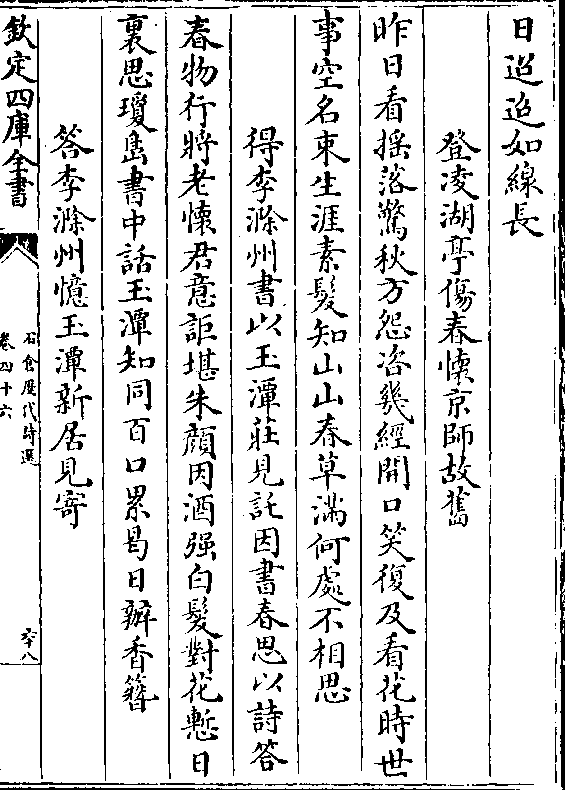 日迢迢如線長
登凌湖亭傷春懷京師故舊
昨日看搖落驚秋方怨咨幾經開口笑復及看花時世
事空名束生涯素髮知山山春草滿何處不相思
得李滁州書以玉潭莊見託因書春思以詩答
春物行將老懷君意詎堪朱顔因酒强白髮對花慙日
裏思瓊島書中話玉潭知同百口累曷日辦香簪
答李滁州憶玉潭新居見寄
欽定四庫全書
石倉歷代詩選
卷四十六